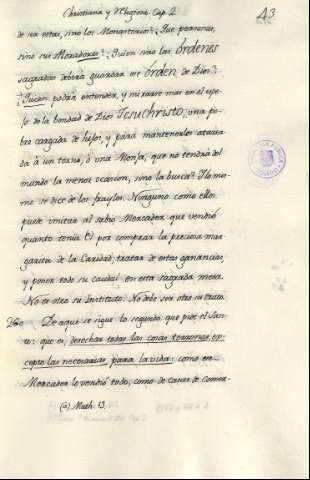 Christiana y Religiosa Cap. 2
43
de ser estas, sino los Monasterios? ¿Que personas,
sino sus Moradores? ¿Quien sino las órdenes
sagradas deberia guardar este órden de Dios?
¿Quien podrá entender, y mirarse mas en el espe-
jo de la bondad de Dios Jesuchristo, una po-
bre cargada de hijos, y para mantenerlos atarea-
da á un torno, ó una Monja, que no tendrá del
mundo la menor ocasion, sino la busca? Lo mis-
mo se dice de los frayles. Ninguno como ellos
puede imitar al sabio Mercader que vendió
quanto tenia (a) por comprar la preciosa mar-
garita de la Caridad, tratar de estas ganancias,
y poner todo su caudal en esta sagrada mesa.
No es otro su Instituto. No debe ser otro su trato.
260 De aqui se sigue lo segundo que pide el San-
to: que es, desechar todas las cosas terrenas, ex-
cepto las necesarias, para la vida: como este
Mercader lo vendió todo, como de tratar de Comer-
(a) Math. 13.